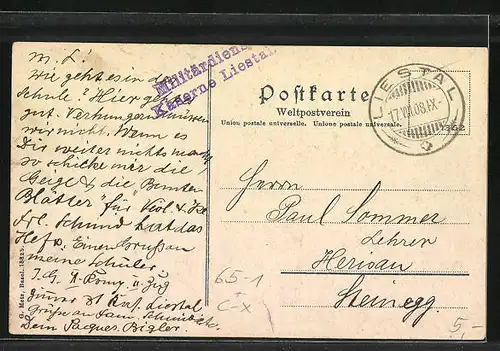 Militärdienst
Kaserne Liestal
Postkarte
Weltpostverein
Union postale universelle. Unione postale universale.
LIESTAL
17.VII.08.IX-
M. L!
wie geht es in der
Schule? Hier geht's
gut. Verhungern müssen
wir nicht. Wenn es
Dir weiter nichts macht,
so schicke mir die
Geige & die "Bunten
Blätter" für Viol. &
Frl. Schmid hat das
Heft. Einen Gruss an
meine Schüler.
I.G. 4. Komp. II Zug
Zimmer 31 Kas. Liestal.
Grüsse an Fam.
Dein Jacques Bigler.
Herrn
Paul Sommer
Lehrer
Herisau
Steinegg.
65-1
C-X
5,-
G. Metz, Basel.